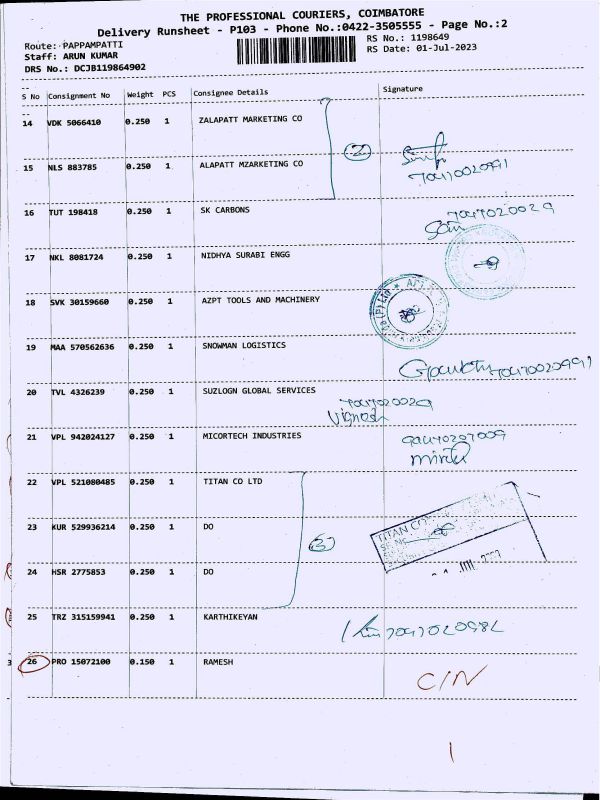 THE PROFESSIONAL COURIERS, COIMBATORE
Delivery Runsheet - P103 - Phone No.:0422-3505555 - Page No.:2
Route: PAPPAMPATTI
RS No.: 1198649
Staff: ARUN KUMAR
RS Date: 01-Jul-2023
DRS No.: DCJB119864902
S No Consignment No Weight PCS Consignee Details Signature
14 VDK 5066410 0.250 1 ZALAPATT MARKETING CO
2
15 NLS 883785 0.250 1 ALAPATT MZARKETING CO
16 TUT 198418 0.250 1 SK CARBONS
7047020029
17 NKL 8081724 0.250 1 NIDHYA SURABI ENGG
18 SVK 30159660 0.250 1 AZPT TOOLS AND MACHINERY
19 MAA 570562636 0.250 1 SNOWMAN LOGISTICS
20 TVL 4326239 0.250 1 SUZLOGN GLOBAL SERVICES
7047020029
Vignesh
21 VPL 942024127 0.250 1 MICORTECH INDUSTRIES
22 VPL 521080485 0.250 1 TITAN CO LTD
23 KUR 529936214 0.250 1 DO
3
TITAN CO
24 HSR 2775853 0.250 1 DO
25 TRZ 315159941 0.250 1 KARTHIKEYAN
26 PRO 15072100 0.150 1 RAMESH
C/N